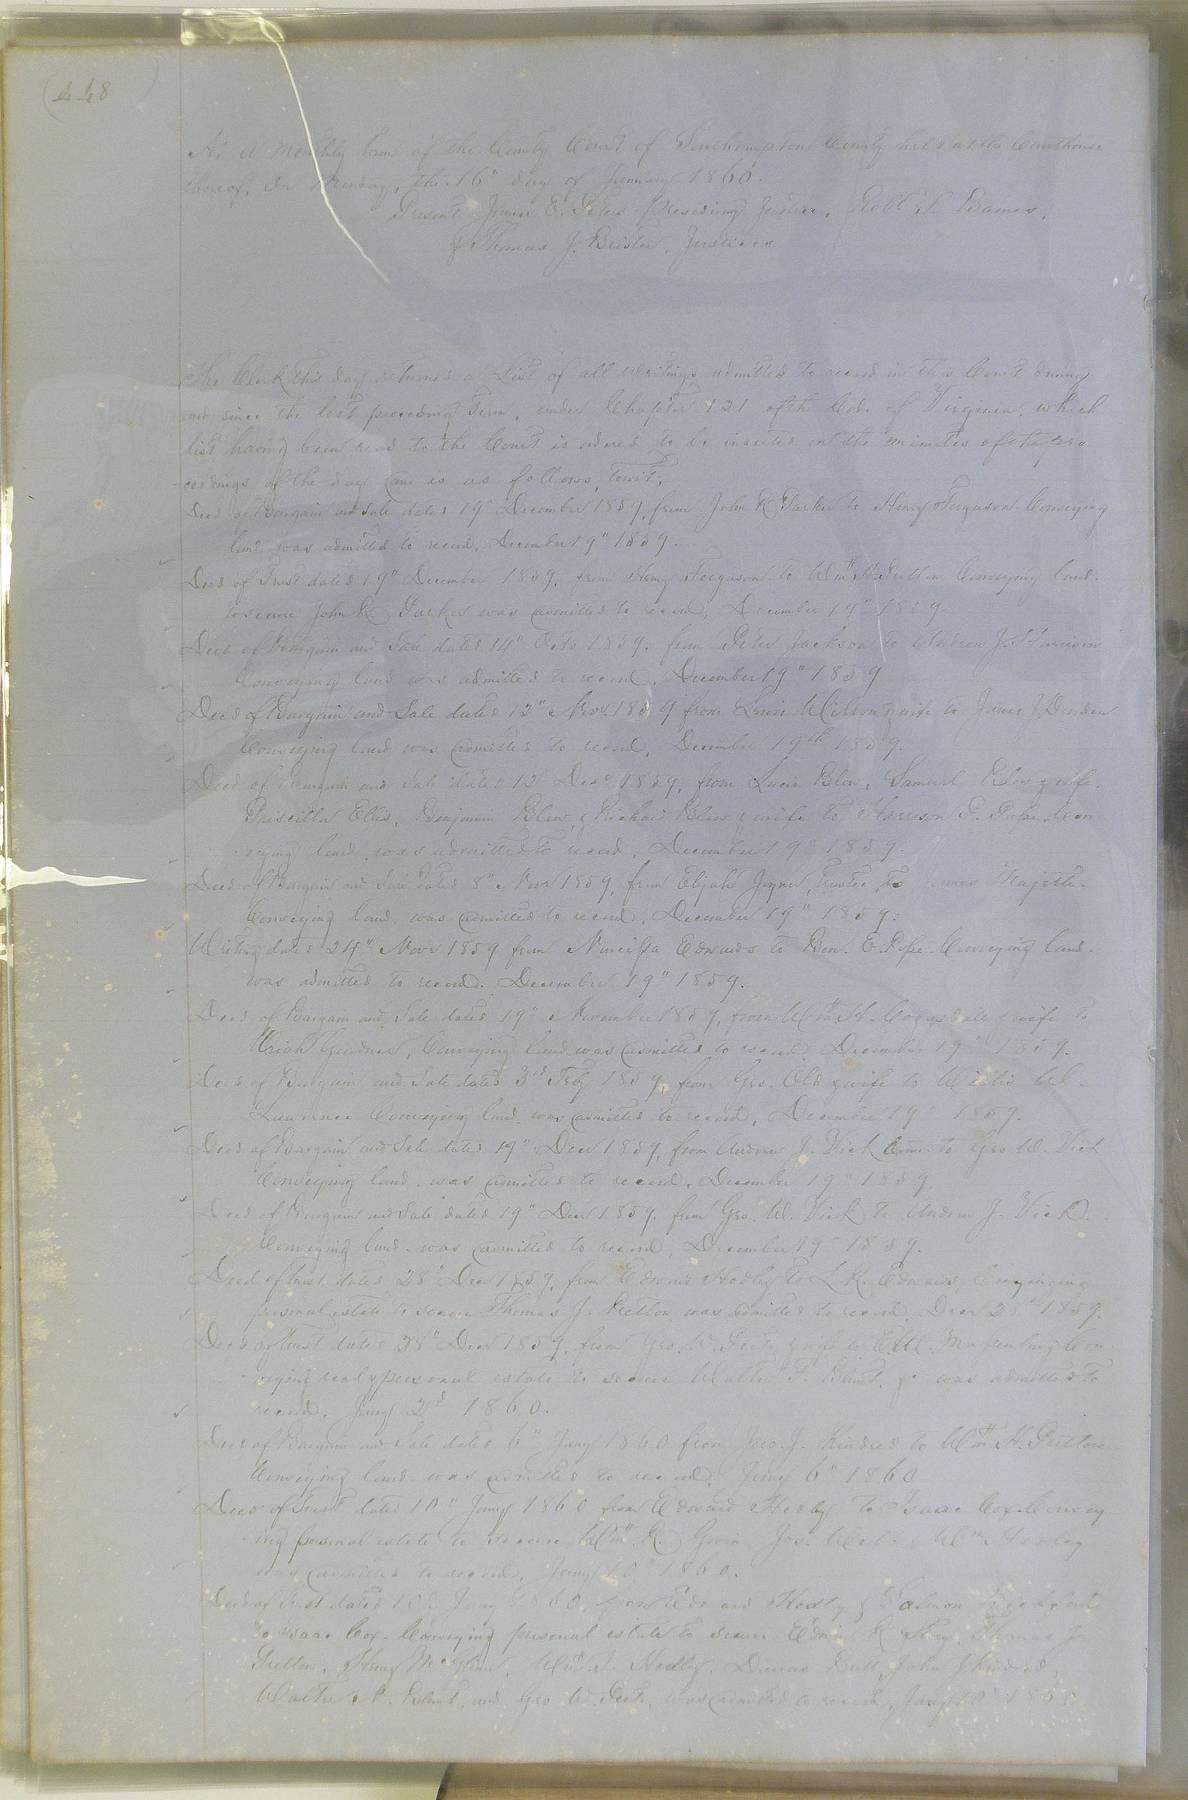 (448)
At a Monthly term of the County Court of Southampton County held at the Courthouse
thereof, On Monday, the 16" day of January 1860.
Present James E. Presiding Justice, Robt S. Barnes,
& Thomas J. Justices
The Clerk this day returned a List of all writings admitted to record in this Court during
and since the last preceeding Term, under Chapter 121 of the Code of Virginia, which
list having been read to the Court is ordered to be inserted on the minutes of the pro
ceedings of the day and is as follows, towit,
Deed of Bargain and Sale dated 19" December 1859, from John R Parker to Henry Ferguson Conveying
land was admitted to record, December 19" 1859.
Deed of Trust dated 19" December 1859, from Henry Ferguson to Wm H. Pretlow Conveying land
to secure John R Parker was admitted to record, December 19" 1859.
Deed of Bargain and Sale dated 14" Octo 1859, from Peter Jackson to Andrew J.
Conveying land was admitted to record, December 19" 1859
Deed of Bargain and Sale dated 12" Novr 1859 from & wife to James J. Darden
Conveying land was admitted to record, December 19th 1859.
Deed of Bargain and Sale dated 12" Decr 1859, from Blow, Samuel Blow & wife,
Priscilla Ellis, Benjamin Blow, & Richard Blow & wife to Harrison P. Pope Con
veying land was admitted to record, December 19" 1859.
Deed of Bargain and Sale dated 8" Novr 1859, from Elijah Joyner, Trustee to James Majette
Conveying land was admitted to record, December 19" 1859.
Writing dated 24" Novr 1859 from Narcissa Edwards to Ben. E. Pope Conveying land
was admitted to record. December 19" 1859.
Deed of Bargain and Sale dated 19" November 1859, from Wm H. Coggsdale & wife to
Uriah Gardner, Conveying land was admitted to record December 19" 1859.
Deed of Bargain and Sale dated 3d Feby 1859, from Geo. Old & wife to
Lawrence Conveying land was admitted to record, December 19" 1859.
Deed of Bargain and Sale dated 19" Decr 1859, from Andrew J. Vick to Geo W. Vick
Conveying land was admitted to record, December 19" 1859.
Deed of Bargain and Sale dated 19" Decr 1859, from Geo. W. Vick to Andrew J. Vick
Conveying land was admitted to record, December 19" 1859.
Deed of trust dated 28" Decr 1859, from Edward Hedly to L. R. Edwards, Conveying
personal estate to secure Thomas J. Pretlow was admitted to record, Decr 28" 1859.
Deed of trust dated 28" Decr 1859, from Geo. W. & wife to Con
veying real & personal estate to secure &c was admitted to
record, Jany 2d 1860.
Deed of Bargain and Sale dated 6" Jany 1860 from Jno. J. Kindred to Wm H. Pretlow
Conveying land was admitted to record, Jany 6" 1860
Deed of Trust dated 10" Jany 1860 from Edward Hedly to Isaac Cox Convey
ing personal estate to secure Wm K. Gwin Jos. & Wm Hedley
was admitted to record, Jany 10" 1860.
Deed of trust dated 10" Jany 1860, from Edward Hedly &
to Isaac Cox Conveying personal estate to secure Thomas J.
Pretlow, Henry Wm J. Hedly, John J Kindred,
Walter and Geo W. was admitted to record, Jany 10" 1860